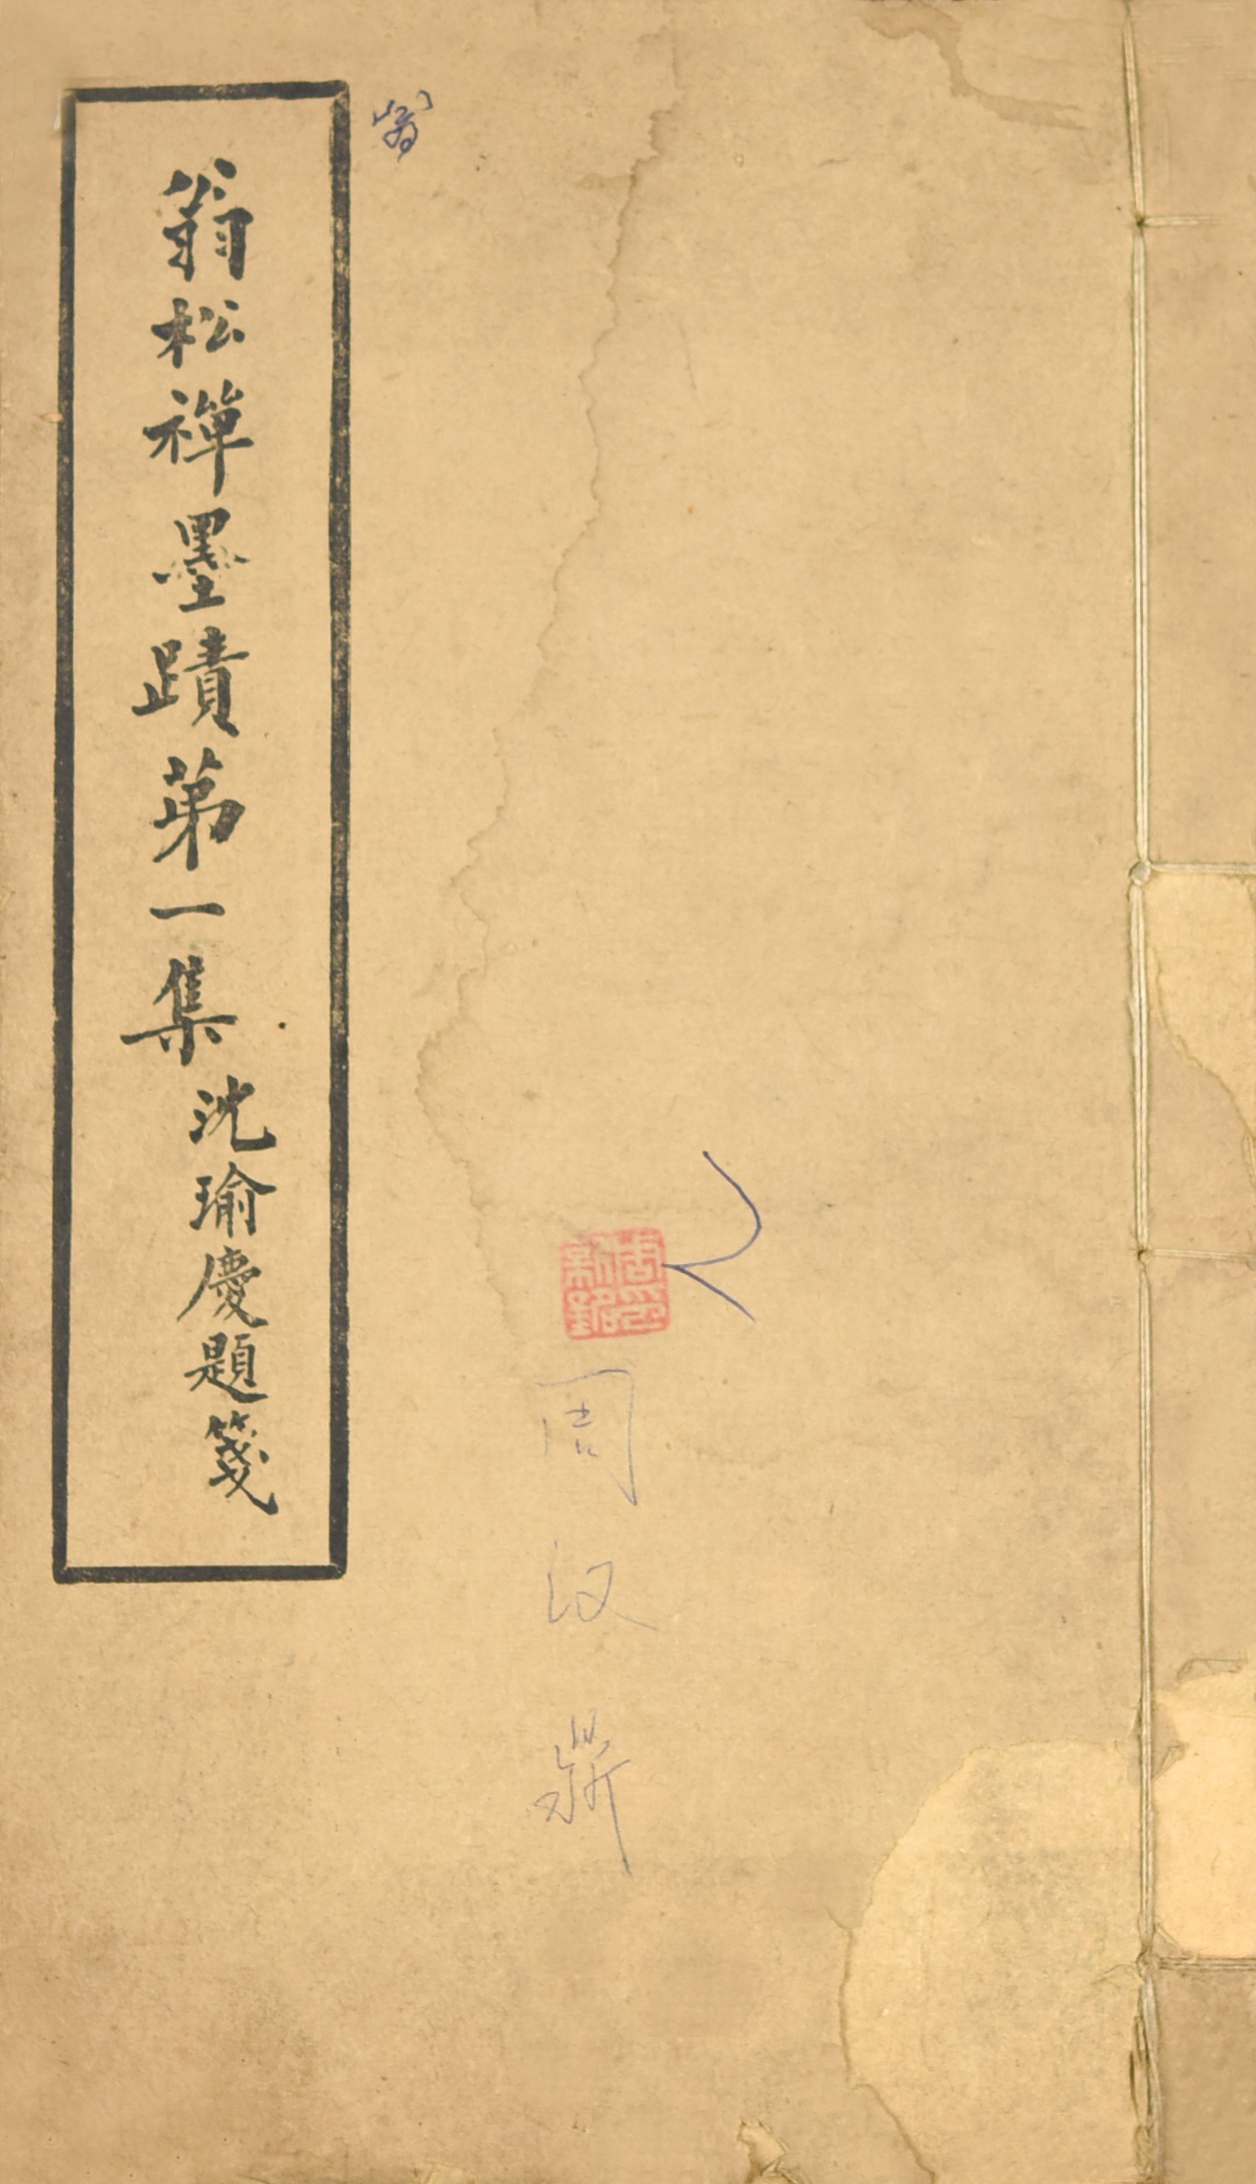 翁松禪墨蹟第一集
沈瑜慶題箋
翁
周汉